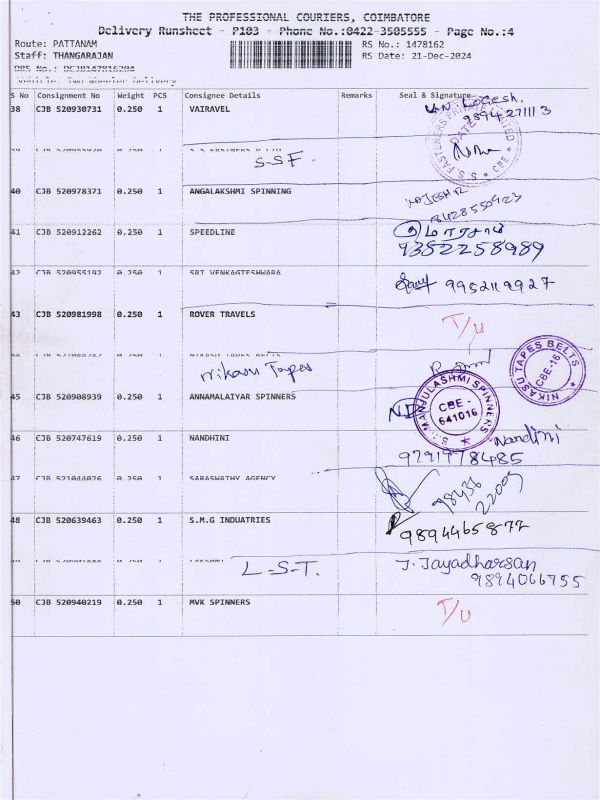 THE PROFESSIONAL COURIERS, COIMBATORE
Delivery Runsheet - P103 - Phone No.:0422-3505555 - Page No.:4
Route: PATTANAM RS No.: 1478162
Staff: THANGARAJAN RS Date: 21-Dec-2024
S No Consignment No Weight PCS Consignee Details Remarks Seal & Signature
38 CJB 520930731 0.250 1 VAIRAVEL
9894271113
S-S F.
40 CJB 520978371 0.250 1 ANGALAKSHMI SPINNING
41 CJB 520912262 0.250 1 SPEEDLINE
9352258989
42 CJB 520955192 0.250 1 SRI VENKAGTESHWARA
9952119927
43 CJB 520981998 0.250 1 ROVER TRAVELS T/U
NIKASU TAPES BELTS
NIKASU TAPES BELTS CBE-16
45 CJB 520908939 0.250 1 ANNAMALAIYAR SPINNERS
MANJULASHMI SPINNERS CBE - 641016
46 CJB 520747619 0.250 1 NANDHINI Nandini
47 CJB 521044026 0.250 1 SARASWATHY AGENCY
98436
22009
48 CJB 520639463 0.250 1 S.M.G INDUATRIES
9894465877
L-S-T. J. Jayadharsan
9894066755
50 CJB 520940219 0.250 1 MVK SPINNERS T/U